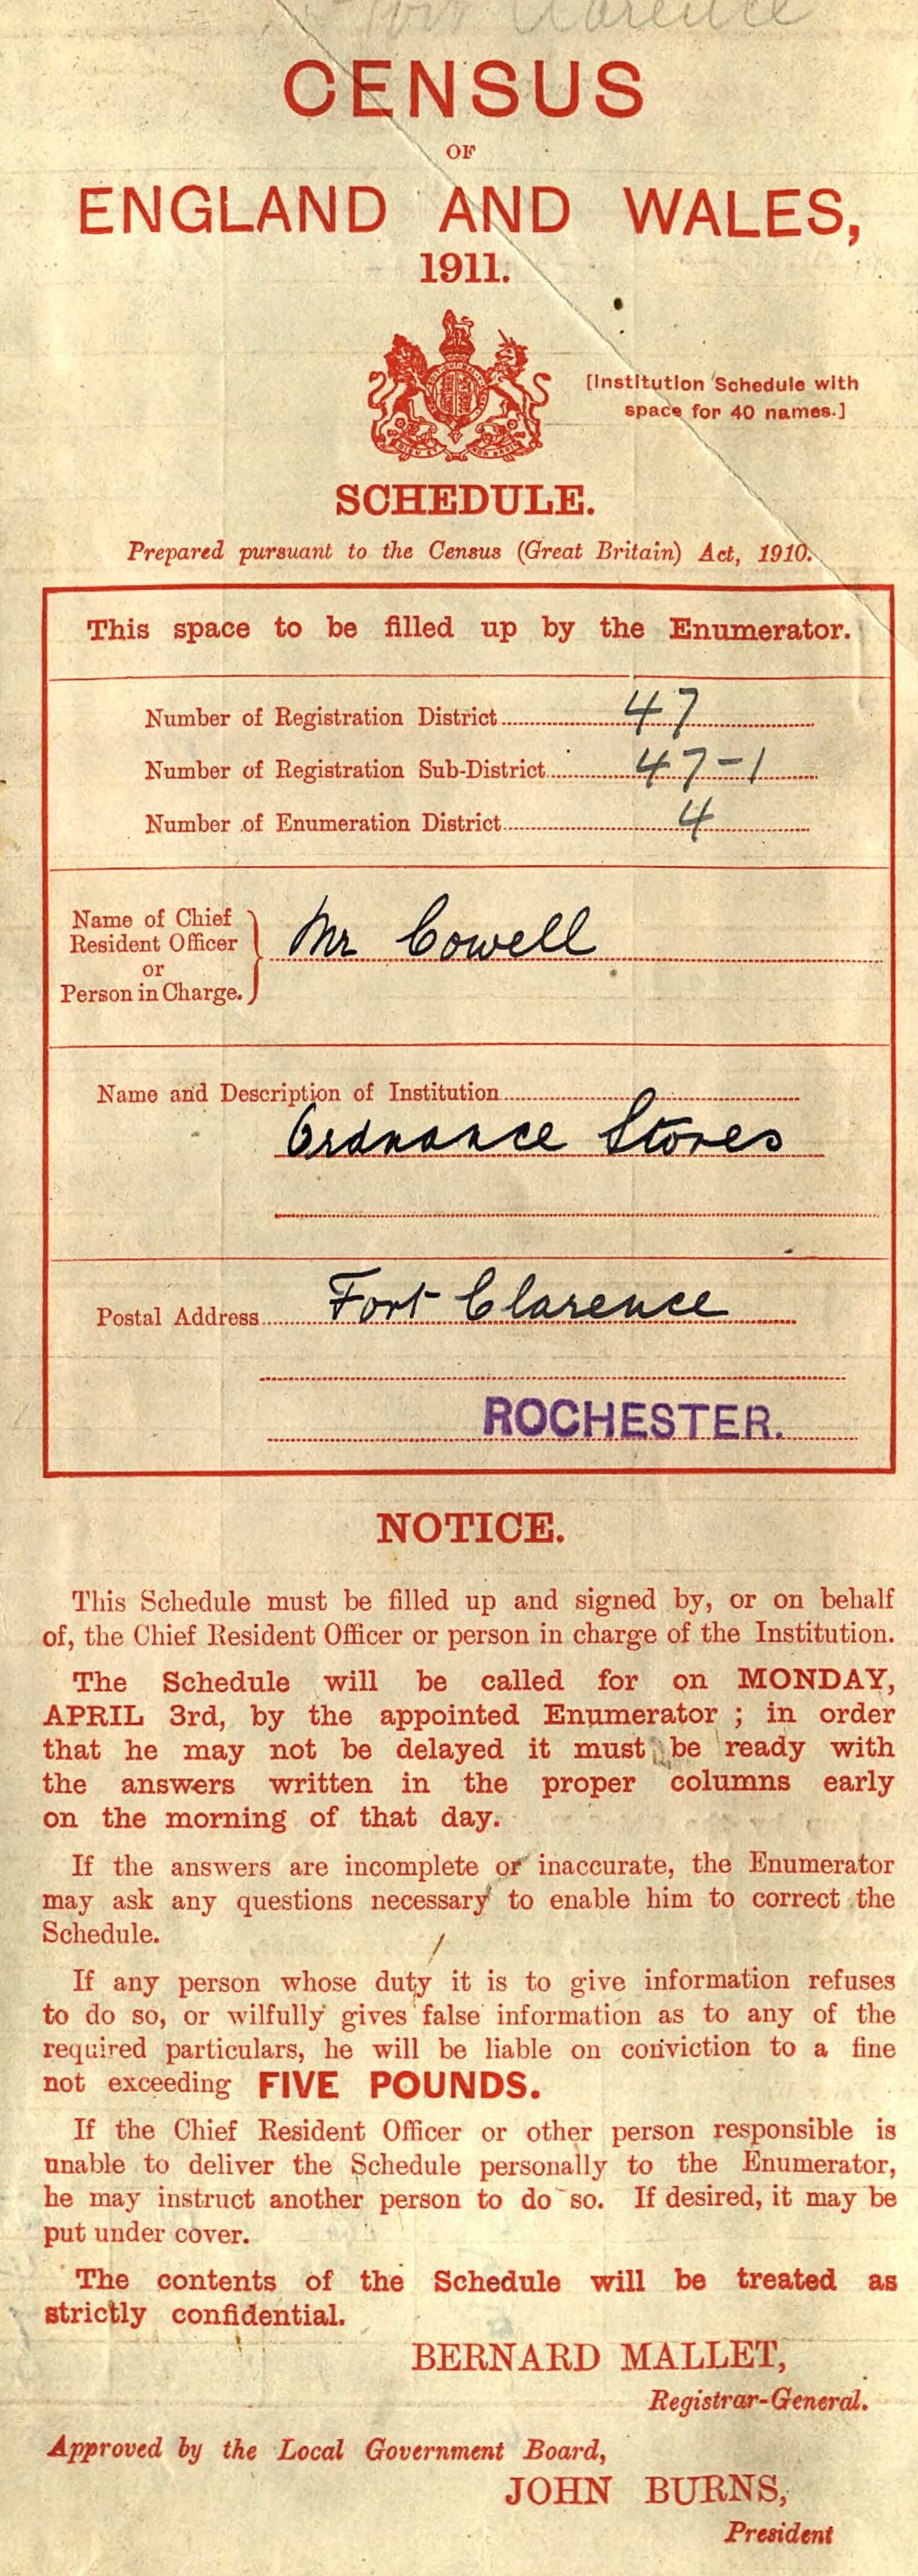 Fort Clarence
CENSUS
OF
ENGLAND AND WALES,
1911.
[Institution Schedule with
space for 40 names.]
SCHEDULE.
Prepared pursuant to the Census (Great Britain) Act, 1910.
This space to be filled up by the Enumerator.
Number of Registration District 47
Number of Registration Sub-District 47-1
Number of Enumeration District 4
Name of Chief
Resident Officer
or
Person in Charge.
Mr Cowell
Name and Description of Institution
Ordnance Stores
Postal Address Fort Clarence
ROCHESTER.
NOTICE.
This Schedule must be filled up and signed by, or on behalf
of, the Chief Resident Officer or person in charge of the Institution.
The Schedule will be called for on MONDAY,
APRIL 3rd, by the appointed Enumerator ; in order
that he may not be delayed it must be ready with
the answers written in the proper columns early
on the morning of that day.
If the answers are incomplete or inaccurate, the Enumerator
may ask any questions necessary to enable him to correct the
Schedule.
If any person whose duty it is to give information refuses
to do so, or wilfully gives false information as to any of the
required particulars, he will be liable on conviction to a fine
not exceeding FIVE POUNDS.
If the Chief Resident Officer or other person responsible is
unable to deliver the Schedule personally to the Enumerator,
he may instruct another person to do so. If desired, it may be
put under cover.
The contents of the Schedule will be treated as
strictly confidential.
BERNARD MALLET,
Registrar-General.
Approved by the Local Government Board,
JOHN BURNS,
President